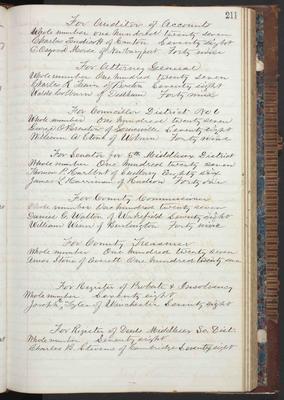 211
For Auditor of Accounts
Whole number one hundred twenty seven
Charles Endicott of Canton Seventy eight
C. Osgood Morse of Newburyport Forty nine
For Attorney General
Whole number One hundred twenty seven
Charles R Train of Boston Seventy eight
Waldo Colburn of Dedham Forty nine
For Councillor District No 6
Whole number One hundred twenty seven
of Somerville Seventy eight
William A. of Woburn Forty nine
For Senator for 5th Middlesex District
Whole number One hundred twenty seven
Thomas P. Hurlbut of Sudbury Eighty six
James L Harriman of Hudson Forty one
For County Commissioner
Whole number One hundred twenty seven
Daniel G. Walton of Wakefield Seventy eight
William Winn of Burlington Forty nine
For County Treasurer
Whole number One hundred twenty seven
Amos Stone of Everett One hundred twenty seven
For Register of Probate & Insolvency
Whole number Seventy eight
Joseph H. Tyler of Winchester Seventy eight
For Register of Deeds Middlesex So. Dist.
Whole number Seventy eight
Charles B. Stevens of Cambridge Seventy eight